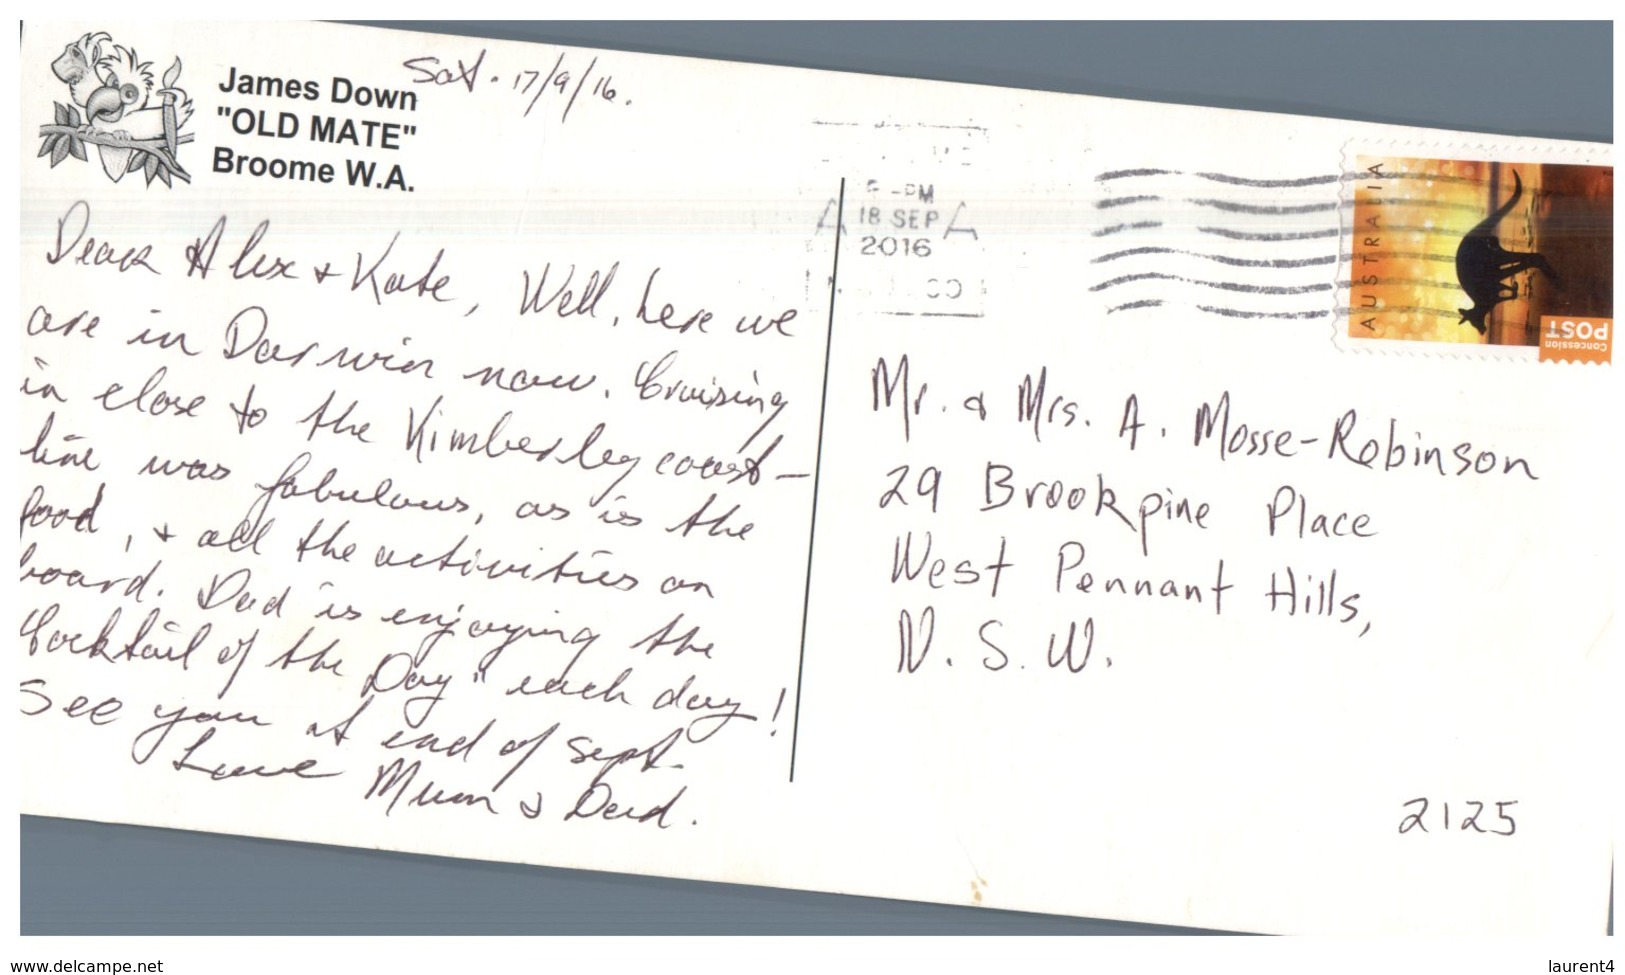 James Down
"OLD MATE"
Broome W.A.
Sat. 17/9/16.
Dear Alex & Kate, Well, here we
are in Darwin now. Cruising
in close to the Kimberley coast-
line was fabulous, as is the
food, & all the activities on
board. Dad is enjoying the
Cocktail of the Day" each day!
See you at end of Sept.
Love Mum & Dad.
PM
18 SEP
2016
AUSTRALIA
Concession
POST
Mr. & Mrs. A. Mosse-Robinson
29 Brookpine Place
West Pennant Hills,
N.S.W.
2125
www.delcampe.net
laurent4